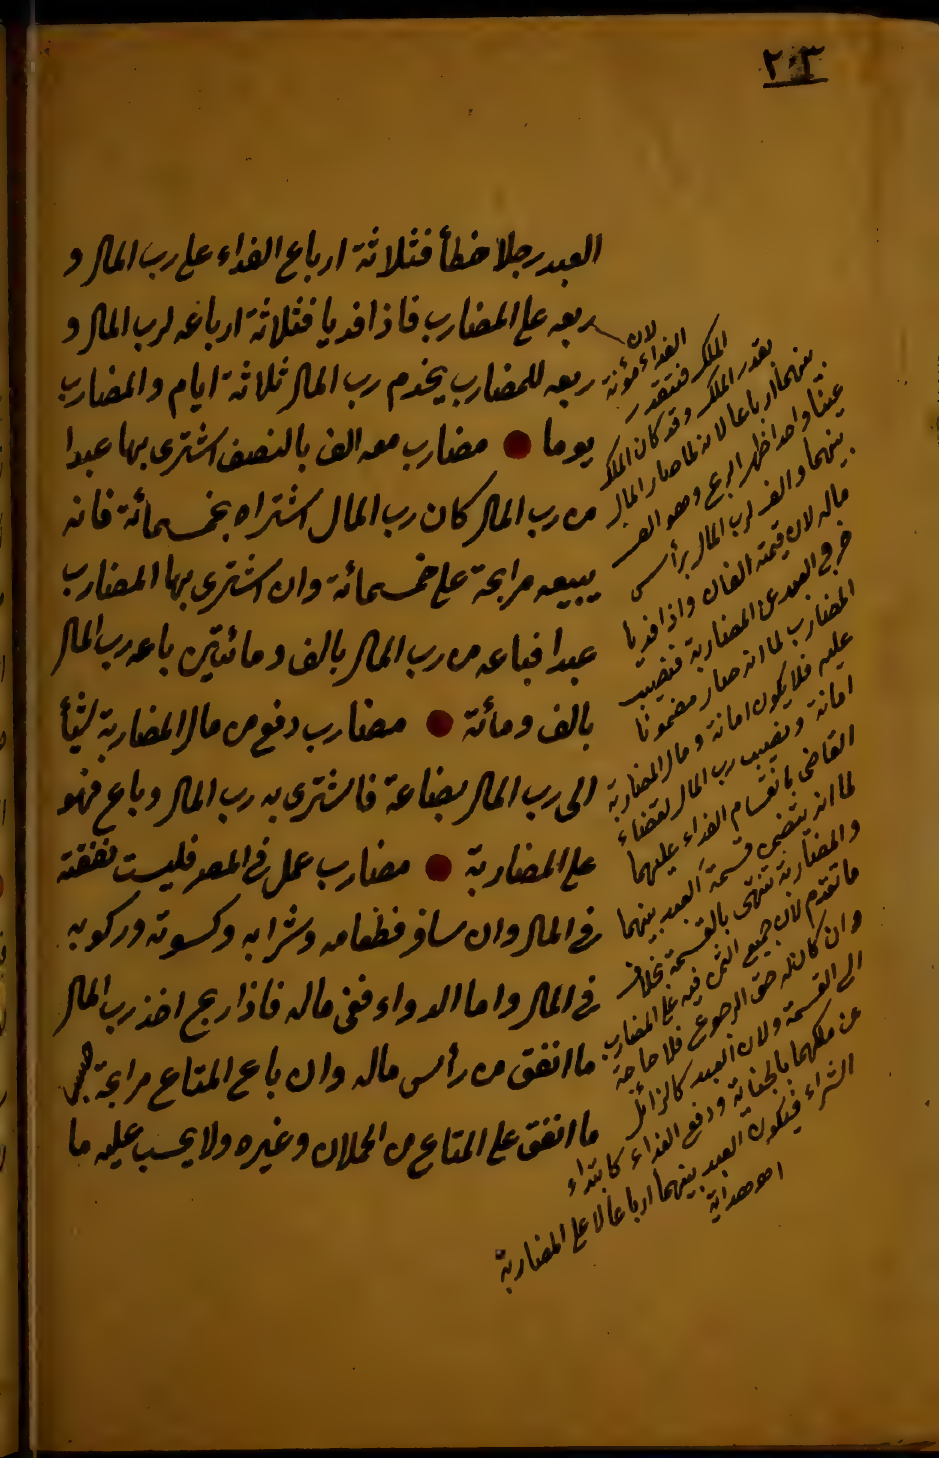 ٢٠٣
العبد رجلا خطأ فثلاثة ارباع الفداء على رب المال و
ربعه على المضارب فاذا فديا فثلاثة ارباعه لرب المال و
ربعه للمضارب يخدم رب المال ثلاثة ايام والمضارب
يوما مضارب معه الف بالنصف اشترى بها عبدا
من رب المال كان رب المال اشتراه بخمسمائة فانه
يبيعه مرابحة على خمسمائة وان اشترى بها المضارب
عبدا فباعه من رب المال بالف ومائتين باعه رب المال
بالف ومائة مضارب دفع من مال المضاربة شيأ
الى رب المال بضاعة فاشترى به رب المال وباع فهو
على المضاربة مضارب عمل في المصر فليست نفقته
في المال وان سافر فطعامه وشرابه وكسوته وركوبه
في المال واما الدواء ففي ماله فاذا ربح اخذ رب المال
ما انفق من رأس ماله وان باع المتاع مرابحة حسب
ما انفق على المتاع من الحملان وغيره ولا يحسب عليه ما
لان
الفداء مؤنة
الملك فتتقدر
بقدر الملك وقد كان الملك
بينهما ارباعا لانه لما صار المال
عينا واحدا ظهر الربح وهو الف
بينهما والف لرب المال برأس
ماله لان قيمته الفان واذا فديا
خرج العبد عن المضاربة فنصيب
المضارب لما انه صار مضمونا
عليه فلا يكون امانة ومال المضاربة
امانة ونصيب رب المال لقضاء
القاضي بانقسام الفداء عليهما
لما انه يتضمن قسمة العبد بينهما
والمضاربة تنتهى بالقسمة بخلاف
ما تقدم لان جميع الثمن فيه على المضارب
وان كان له حق الرجوع فلا حاجة
الى القسمة ولان العبد كالزائل
عن ملكهما بالجناية ودفع الفداء كابتداء
الشراء فيكون العبد بينهما ارباعا لا على المضاربة
اهـ هداية